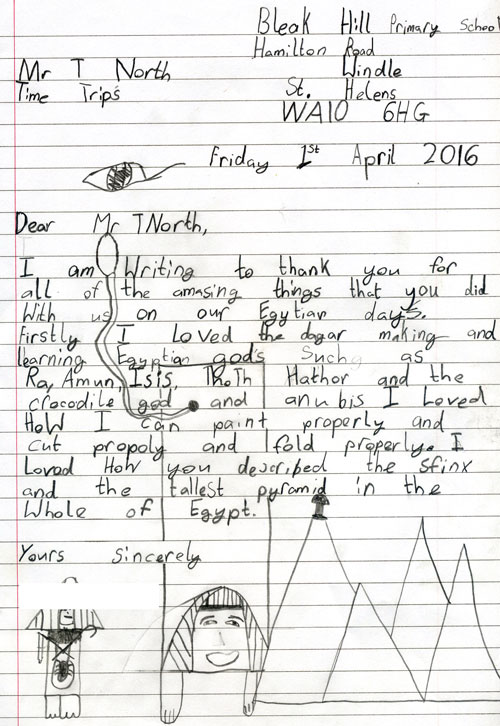 Bleak Hill Primary School
Hamilton Road
Mr T North Windle
Time Trips St. Helens
WA10 6HG
Friday 1st April 2016
Dear Mr T North,
I am Writing to thank you for
all of the amasing things that you did
With us on our Egytian days.
firstly I Loved the dagar making and
learning Egyptian god's Such as
Ra, Amun, Isis, ThoTh Hathor and the
crocodile god and anubis I Loved
HoW I can paint properly and
cut propoly and fold properly. I
Loved HoW you described the sfinx
and the tallest pyramid in the
Whole of Egypt.
Yours Sincerely